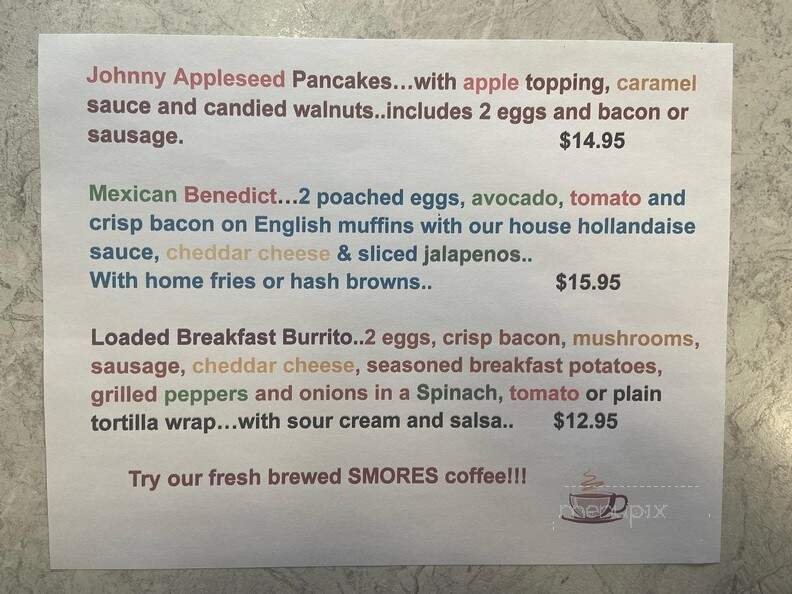 Johnny Appleseed Pancakes...with apple topping, caramel
sauce and candied walnuts..includes 2 eggs and bacon or
sausage. $14.95
Mexican Benedict...2 poached eggs, avocado, tomato and
crisp bacon on English muffins with our house hollandaise
sauce, cheddar cheese & sliced jalapenos..
With home fries or hash browns.. $15.95
Loaded Breakfast Burrito..2 eggs, crisp bacon, mushrooms,
sausage, cheddar cheese, seasoned breakfast potatoes,
grilled peppers and onions in a Spinach, tomato or plain
tortilla wrap...with sour cream and salsa.. $12.95
Try our fresh brewed SMORES coffee!!!
menupix